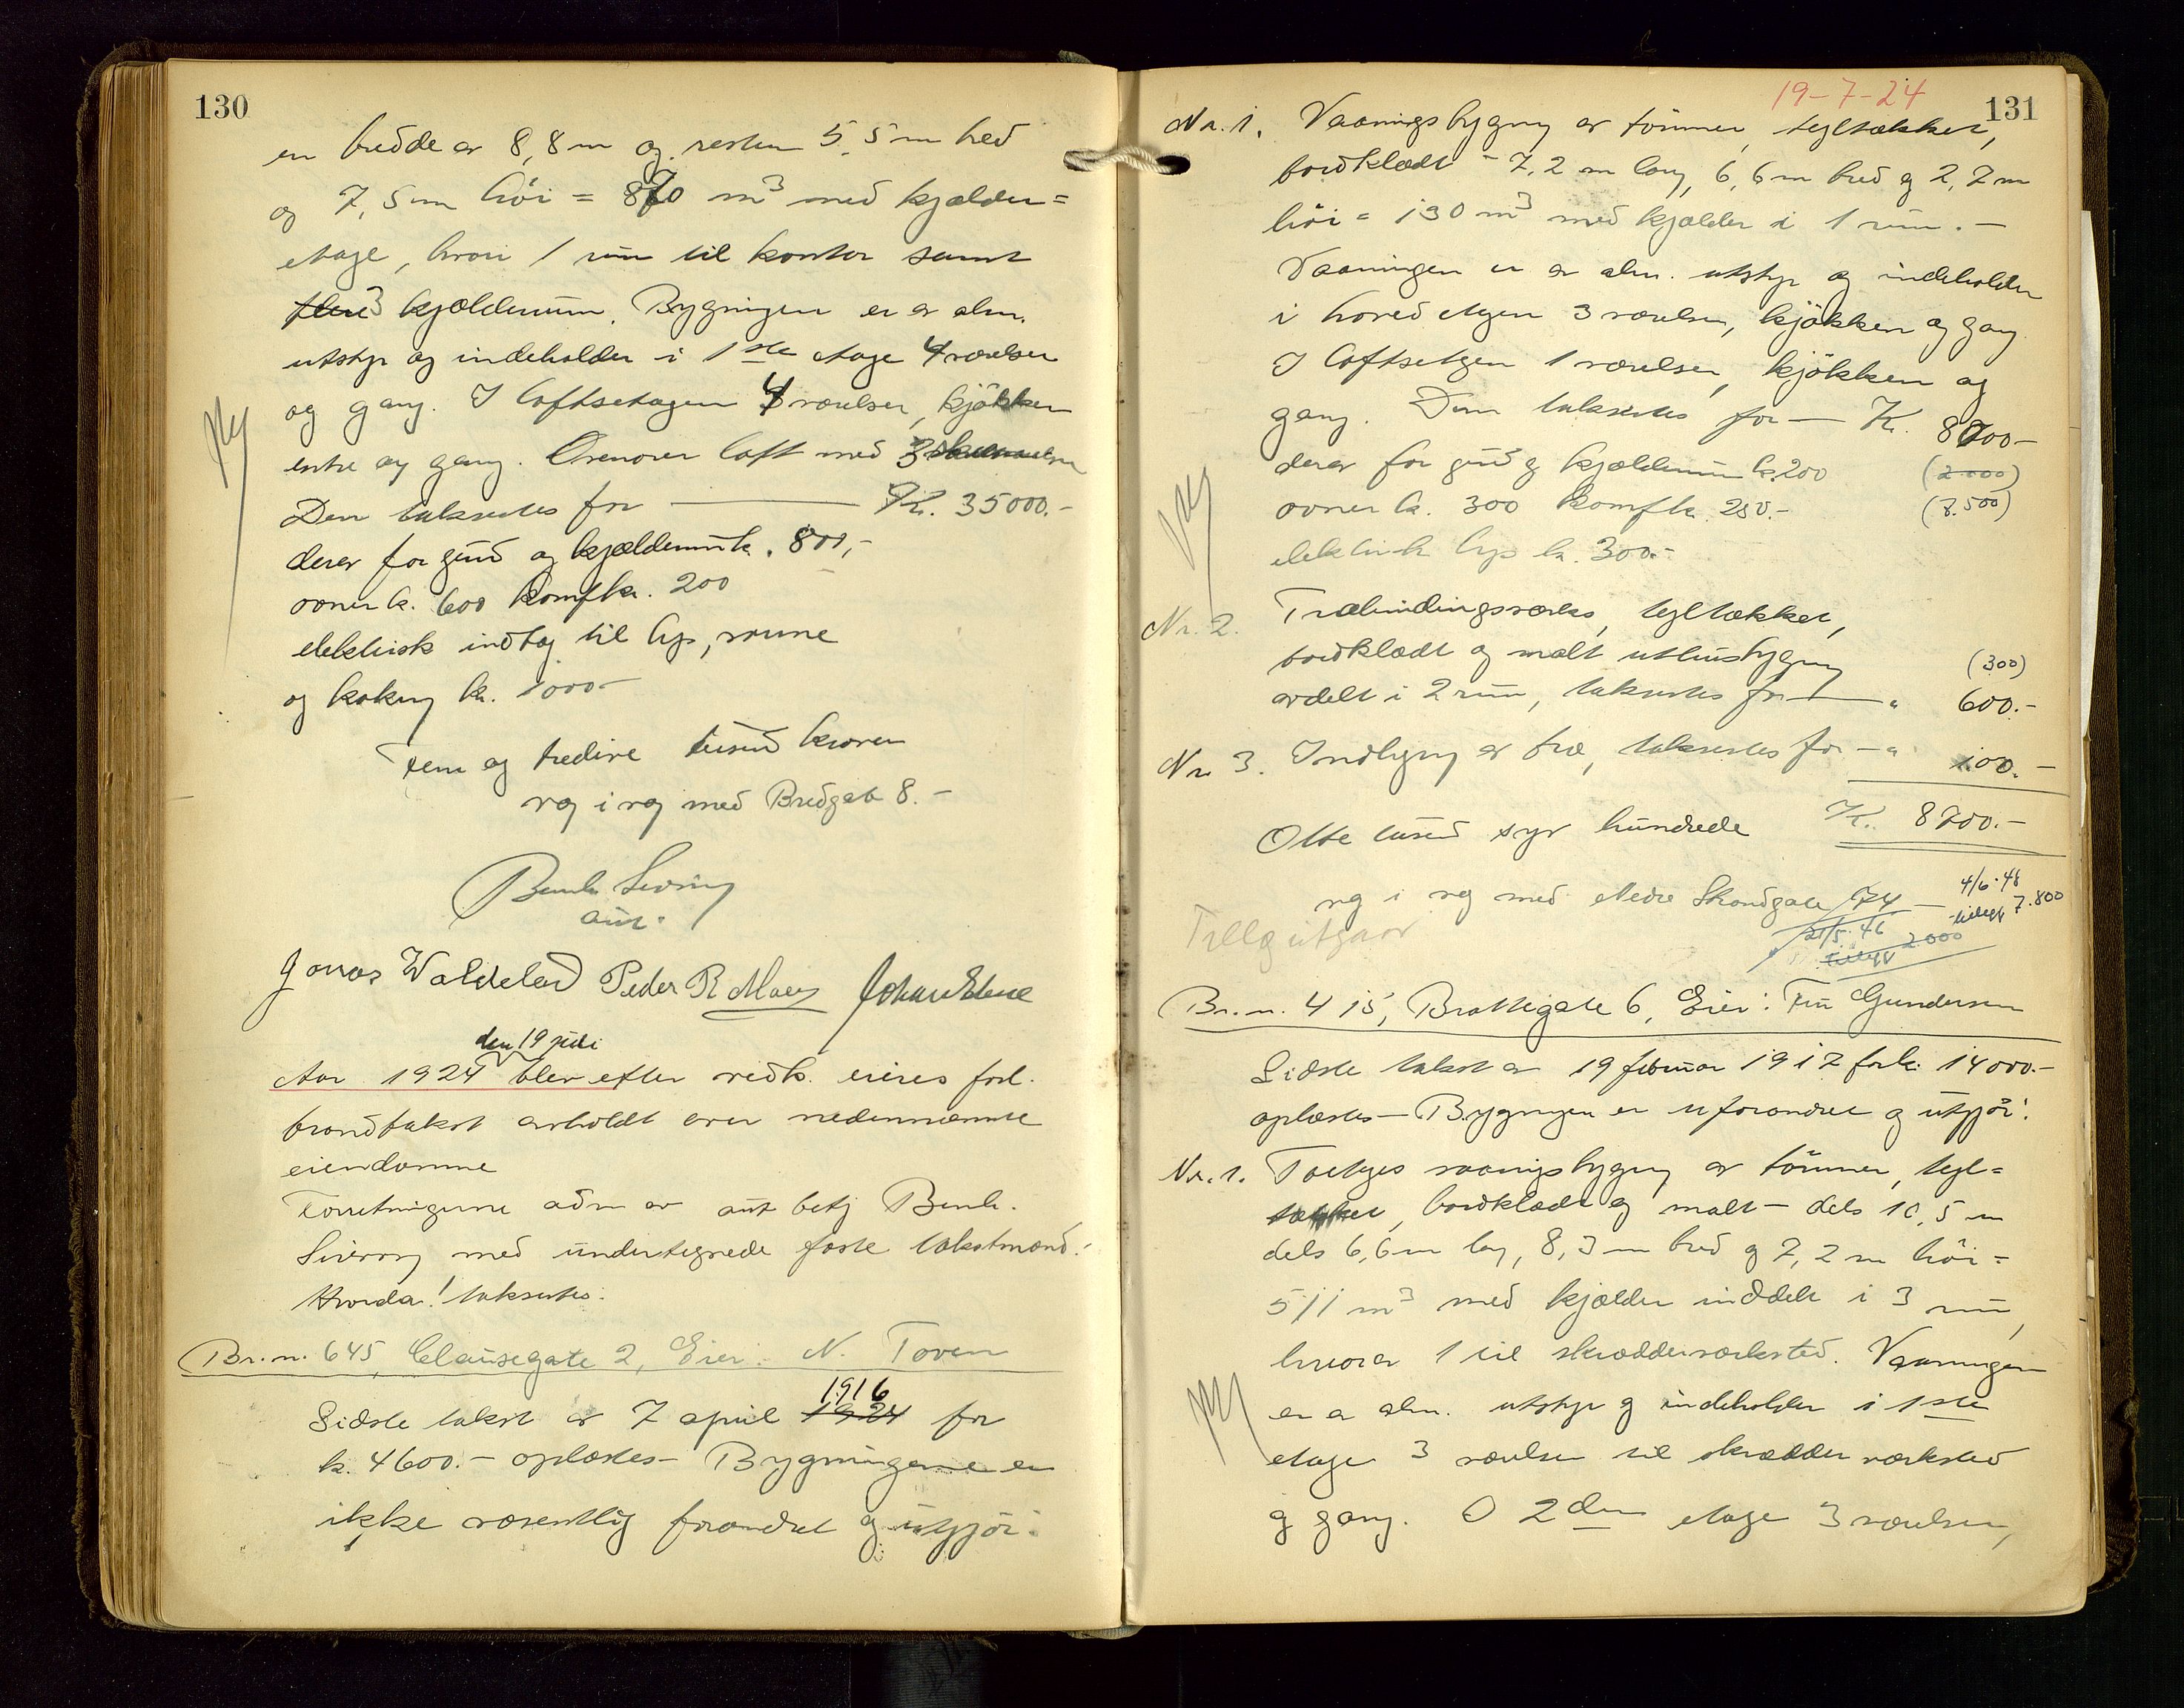 130
en bredde av 8,8 m og resten 5,5 m bred
og 7,5 m höi = 870 m³ med kjælder=
etage, hvori 1 rum til kontor samt
3 kjælderrum. Bygningen er av alm.
utstyr og indeholder i 1ste etage 4 værelser
og gang. I loftsetagen 4 værelser, kjökken
entre og gang. Ovenover loft med 3
Den takseres for — Kr. 35000.-
derav for grund og kjælderrum k. 800,-
ovner k. 600 komf k. 200
elektrisk indtag til lys, varme
og koking kr. 1000.-
Fem og tredive tusind kroner
vg i vg med Bredgate 8.-
Bernh. Severing
aut.
Jonas Waldeland Peder R Maey Johan Elene
den 19 juli
Aar 1924 blev efter vedk. eieres forl.
brandtakst avholdt over nedennævnte
eiendomme
Forretningerne adm av aut betj Bernh.
Severing med undertegnede faste takstmænd.
Hvorda! takseres:
Br.n. 645, Clausegate 2, Eier: N. Toven
Sidste takst av 7 april 1916 for
k. 4600.- oplæstes- Bygningerne er
ikke væsentlig forandret og utgjör:
19-7-24
131
Nr. 1. Vaaningsbygning av tömmer, tegltækket,
bordklædt - 7,2 m lang, 6,6 m bred og 2,7 m
höi = 130 m³ med kjælder i 1 rum. -
Vaaningen er av alm. utstyr og indeholder
i hovedetagen 3 værelser, kjökken og gang
I loftsetagen 1 værelse, kjökken og
gang. Den takseres for — Kr. 8000-
derav for grund og kjælderrum k. 200 (2000)
ovner k. 300 komf k. 250.- (8.500)
elektrisk lys k. 300.-
Nr. 2. Træbindingsverks, tegltækket,
bordklædt og malt uthusbygning (300)
avdelt i 2 rum, takseres for — " 600.-
Nr. 3. Indbygn av træ, takseres for — " 100.-
Otte tusind syv hundrede Kr. 8700.-
vg i vg med Nedre Strandgate 74 — 4/6-48
tillegg 7.800
Tillæg utgaar 21/5-46
tillegg 2000
Br.n. 415, Brattegate 6, Eier: Finn Gundersen
Sidste takst av 19 februar 1917 for k. 14000.-
oplæstes - Bygningen er uforandret og utgjör:
Nr. 1. Toetages vaaningsbygning av tömmer, tegl=
tækket, bordklædt og malt - dels 10,5 m
dels 6,6 m lang, 8,3 m bred og 7,2 m höi =
511 m³ med kjælder inddelt i 3 rum,
hvorav 1 til skrædderverksted. Vaaningen
er av alm. utstyr og indeholder i 1ste
etage 3 værelser til skrædderverksted
og gang. I 2den etage 3 værelser,